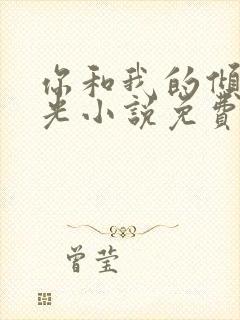 你和我的倾
光小说免费
曾莹